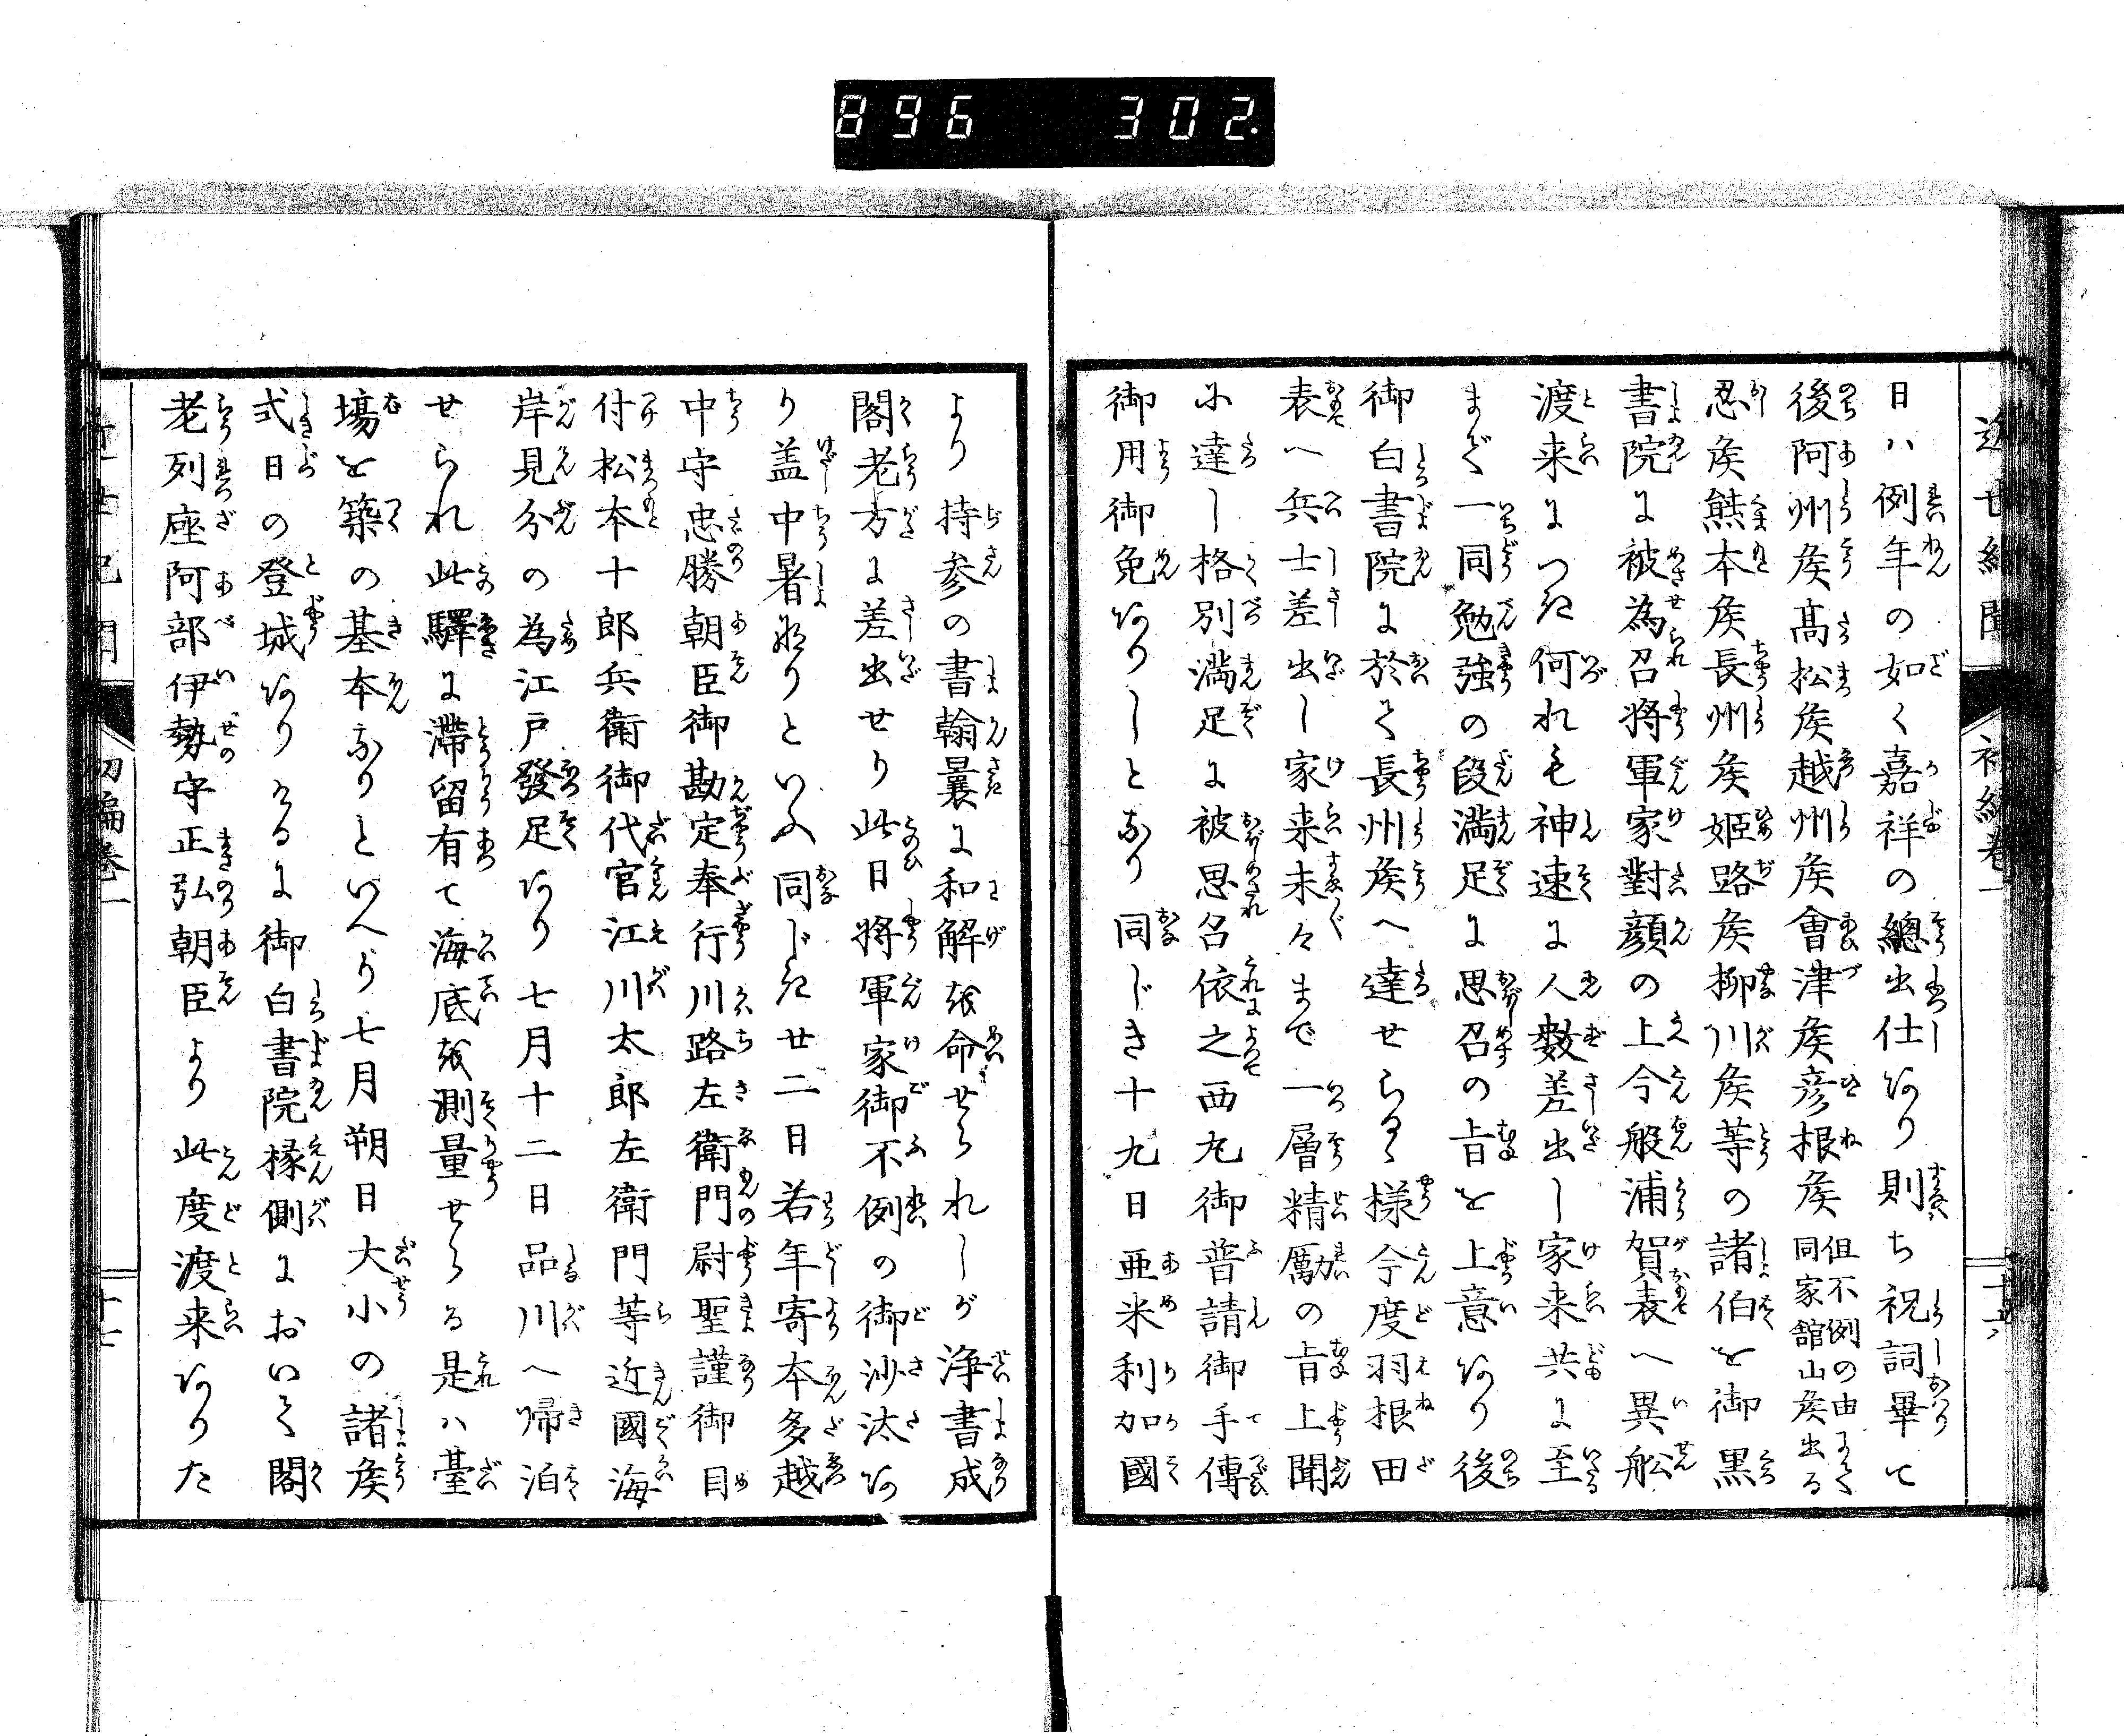 896 302.
日ハ例年の如く嘉祥の總出仕あり則ち祝詞畢て
後阿州矦髙松矦越州矦會津矦彦根矦 但不例の由にて同家舘山矦出る
忍矦熊本矦長州矦姫路矦柳川矦等の諸伯を御黒
書院に被為召将軍家對顔の上今般浦賀表へ異舩
渡来につき何れも神速に人数差出し家来共に至
まで一同勉強の段満足に思召の旨を上意あり後
御白書院に於て長州矦へ達せらるゝ様今度羽根田
表へ兵士差出し家来末々まで一層精厲の旨上聞
に達し格別満足に被思召依之西丸御普請御手傳
御用御免ありしとなり同じき十九日亜米利加國
より持参の書翰曩に和解を命せられしが浄書成
閣老方に差出せり此日将軍家御不例の御沙汰あ
り盖中暑なりといふ同じき廿二日若年寄本多越
中守忠勝朝臣御勘定奉行川路左衛門尉聖謹御目
付松本十郎兵衛御代官江川太郎左衛門等近國海
岸見分の為江戸發足あり七月十二日品川へ帰泊
せられ此驛に滞留有て海底を測量せらる是ハ臺
塲を築の基本なりといへり七月朔日大小の諸矦
式日の登城ありけるに御白書院縁側において閣
老列座阿部伊勢守正弘朝臣より此度渡来ありた
初編巻一